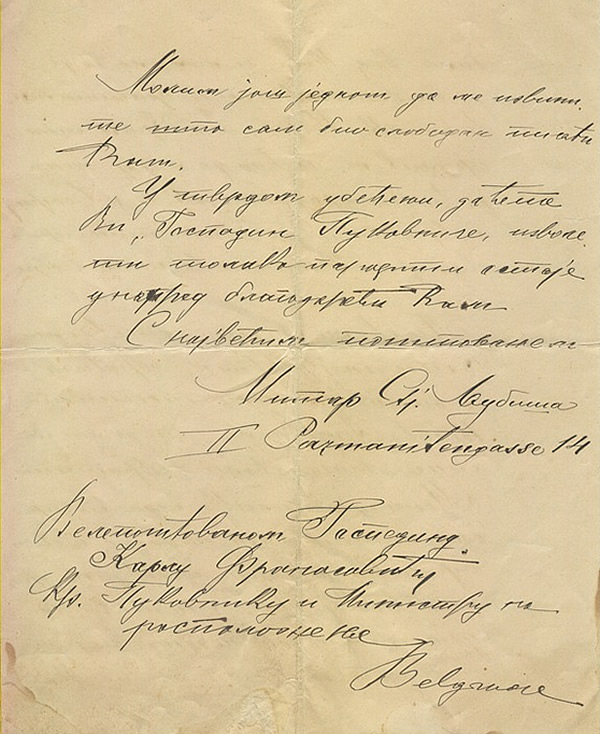 Молим још једном да ме извини-
те што сам био слободан писати
Вам.
У тврдом убеђењу, да ћете
Ви, Господин Пуковниче, изволе-
ти
унапред благодарећи Вам
С највећим поштовањем
Митар Стј. Љубиша
II Pazmanitengasse 14
Велепоштованом Господину
Карлу Франасовићу
Кр. Пуковнику и Министру на
расположење
Belgrade